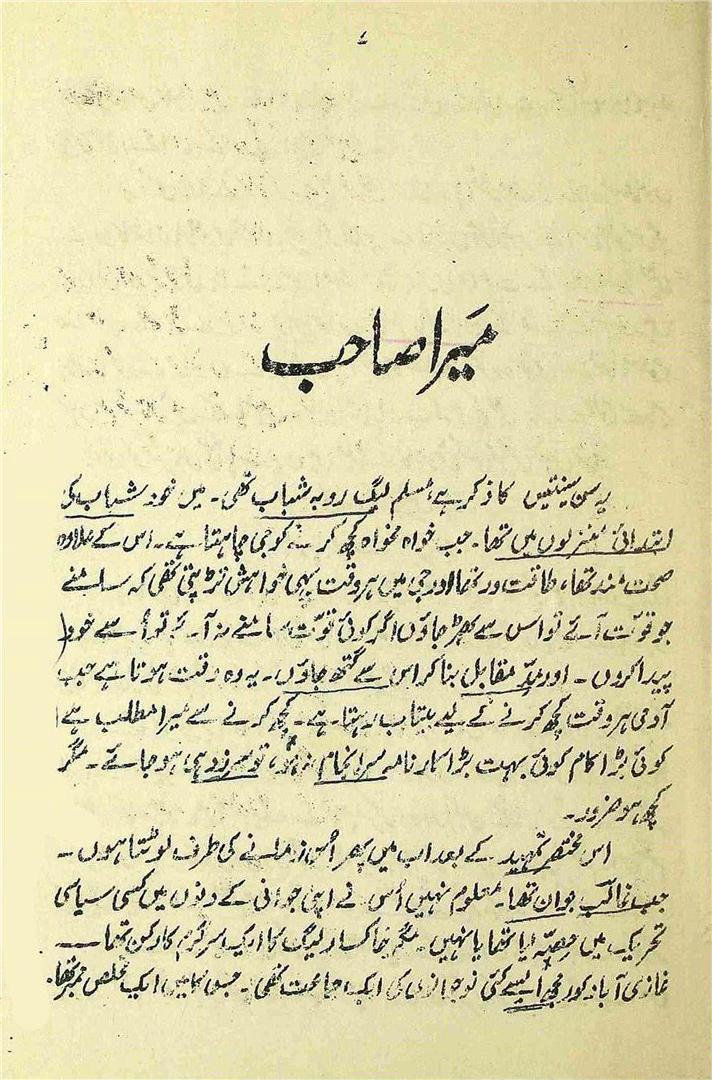 ۷
میرا صاحب
یہ سن سینتیس کا ذکر ہے، مسلم لیگ روبہ شباب تھی۔ میں خود شباب کی
ابتدائی منزلوں میں تھا۔ جب خواہ مخواہ کچھ کرنے کو جی چاہتا ہے۔ اس کے علاوہ
صحت مند تھا، طاقت ور تھا اور جی میں ہر وقت یہی خواہش تڑپتی تھی کہ سامنے
جو قوت آئے تو اس سے بھڑ جاؤں اگر کوئی قوت سامنے نہ آئے تو اُسے خود
پیدا کروں۔ اور مدِّ مقابل بنا کر اس سے گتھ جاؤں۔ یہ وہ وقت ہوتا ہے جب
آدمی ہر وقت کچھ کرنے کے لیے بیتاب رہتا ہے۔ کچھ کرنے سے میرا مطلب ہے
کوئی بڑا کام کوئی بہت بڑا کارنامہ سرانجام نہ ہو، تو سرزد ہی ہو جائے۔ مگر
کچھ ہو ضرور۔
اس مختصر تمہید کے بعد اب میں پھر اُس زمانے کی طرف لوٹتا ہوں۔
جب غالب جوان تھا۔ معلوم نہیں اُس نے اپنی جوانی کے دنوں میں کسی سیاسی
تحریک میں حصہ لیا تھا یا نہیں۔ مگر خاکسار لیگ کا ایک سرگرم کارکن تھا۔
غازی آباد کور مجھ ایسے کئی نوجوانوں کی ایک جماعت تھی۔ جس کا میں ایک مخلص ممبر تھا۔